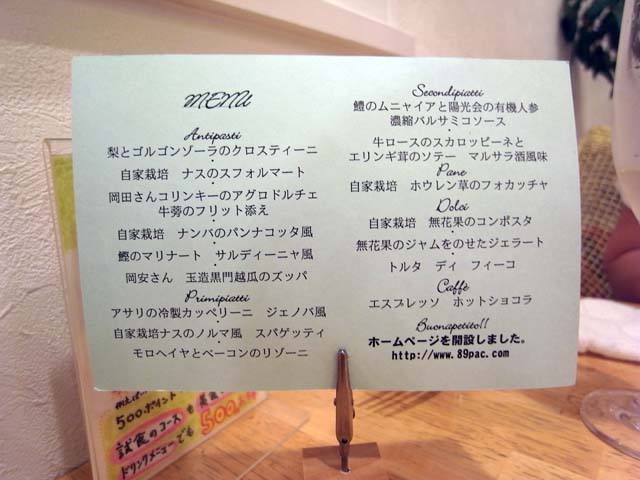 MENU
Antipasti
梨とゴルゴンゾーラのクロスティーニ
・
自家栽培 ナスのスフォルマート
・
岡田さんコリンキーのアグロドルチェ
牛蒡のフリット添え
・
自家栽培 ナンバのパンナコッタ風
・
鰹のマリナート サルディーニャ風
・
岡安さん 玉造黒門越瓜のズッパ
Primipiatti
アサリの冷製カッペリーニ ジェノバ風
・
自家栽培ナスのノルマ風 スパゲッティ
・
モロヘイヤとベーコンのリゾーニ
Secondipiatti
鱧のムニャイアと陽光会の有機人参
濃縮バルサミコソース
・
牛ロースのスカロッピーネと
エリンギ茸のソテー マルサラ酒風味
Pane
自家栽培 ホウレン草のフォカッチャ
Dolci
自家栽培 無花果のコンポスタ
・
無花果のジャムをのせたジェラート
・
トルタ ディ フィーコ
Caffè
エスプレッソ ホットショコラ
Buonapetito!!
ホームページを開設しました。
http://www.89pac.com
500ポイント
試食のコースも
ドリンクメニューでも
500